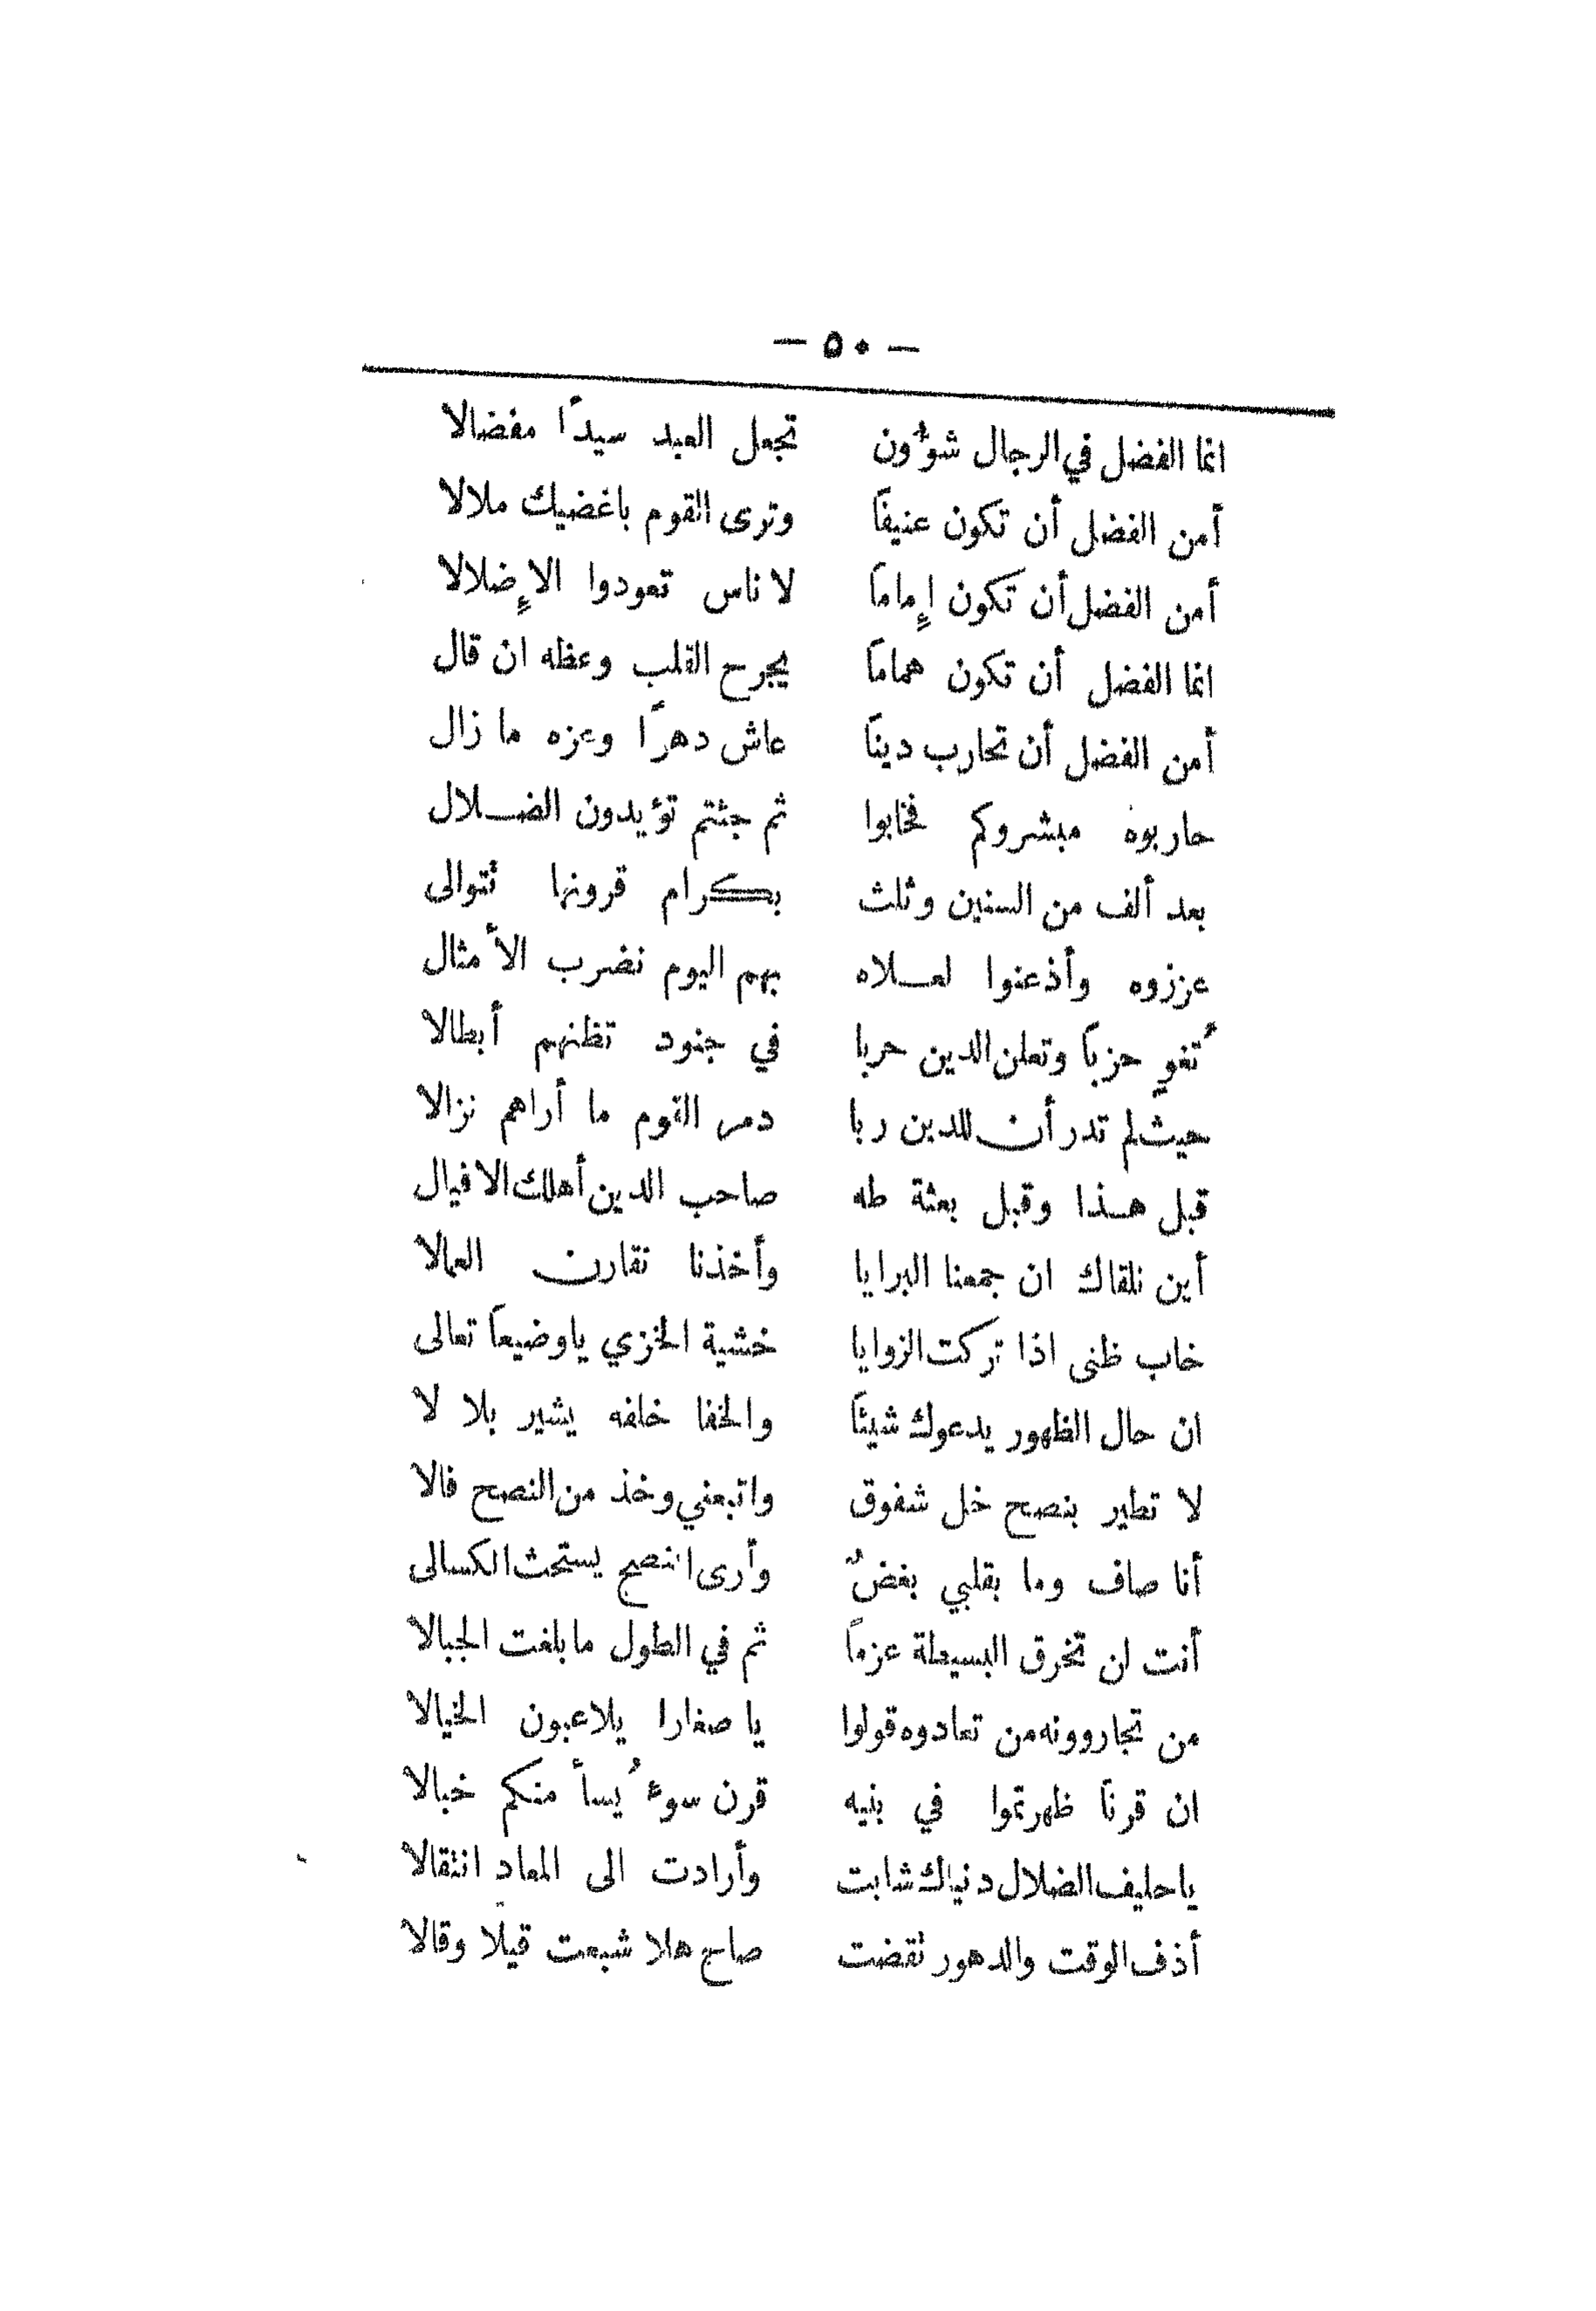 — ٥٠ —
انما الفضل في الرجال شوُّون تجعل العبد سيداً مفضالا
أمن الفضل أن تكون عنيفاً وترى القوم باغضيك ملالا
أمن الفضل أن تكون إماماً لا ناس تعودوا الاٍضلالا
انما الفضل أن تكون هماماً يجرح القلب وعظه ان قال
أمن الفضل أن تحارب ديناً عاش دهراً وعزه ما زال
حاربوه مبشروكم فخابوا ثم جئتم تؤيدون الضـلال
بعد ألف من السنين وثلث بكرام قرونها نتوالى
عززوه وأذعنوا لعـلاه بهم اليوم نضرب الأمثال
ُتغوٍ حزباً وتعلن الدين حربا في جنود تظنهم أبطالا
حيث لم تدر أن للدين ربا دمر القوم ما أراهم نزالا
قبل هـذا وقبل بعثة طه صاحب الدين أهلك الافيال
أين نلقاك ان جمعنا البرايا وأخذنا نقارن العمالا
خاب ظنى اذا تركت الزوايا خشية الخزي ياوضيعاً تعالى
ان حال الظهور يدعوك شيئاً والخفا خلفه يشير بلا لا
لا تطير بنصح خل شفوق واتبعني وخذ من النصح فالا
أنا صاف وما بقلبي بغضٌ وأرى النصح يستحث الكسالى
أنت لن تخرق البسيطة عزماً ثم في الطول مابلغت الجبالا
من تجاروونه من تعادوه قولوا يا صغارا يلاعبون الخيالا
ان قرناً ظهرتموا في بنيه قرن سوء ُيسأ منكم خبالا
ياحليف الضلال دنياك شابت وأرادت الى المعاد انتقالا
أذف الوقت والدهور نقضت صاح هلا شبعت قيلا وقالا